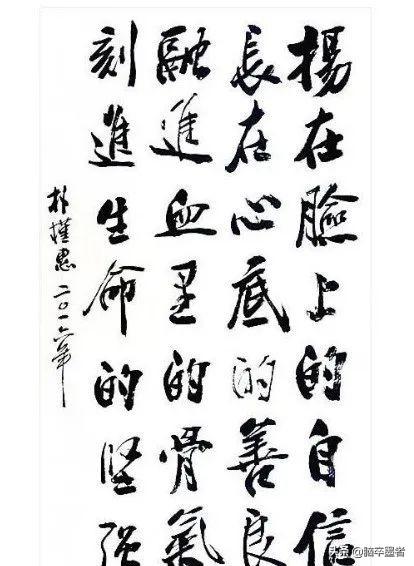 揚在臉上的自信
長在心底的善良
融進血里的骨氣
刻進生命的堅强
朴槿惠 二〇一六年
头条 @脑卒墨者